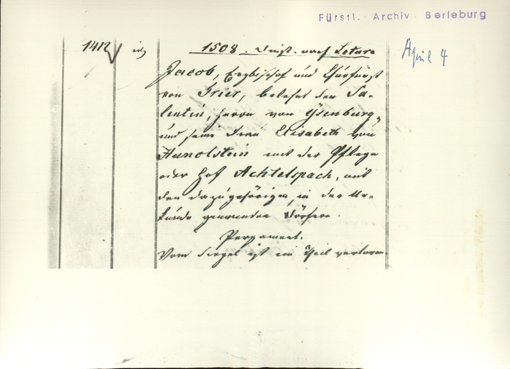 Fürstl. Archiv Berleburg
April 4
1412
1508. Dinst. nach Letare
Jacob, Erzbischof und Churfürst
von Trier, belehnt den Sa-
lentin, Herrn von Ysenburg
und seine Frau Elisabeth von
Hunolstein mit der Pflege
oder Hof Achtelspach, mit
den dazugehörigen, in der Ur-
kunde genannten Dörfern.
Pergament.
Vom Siegel ist ein Theil verloren